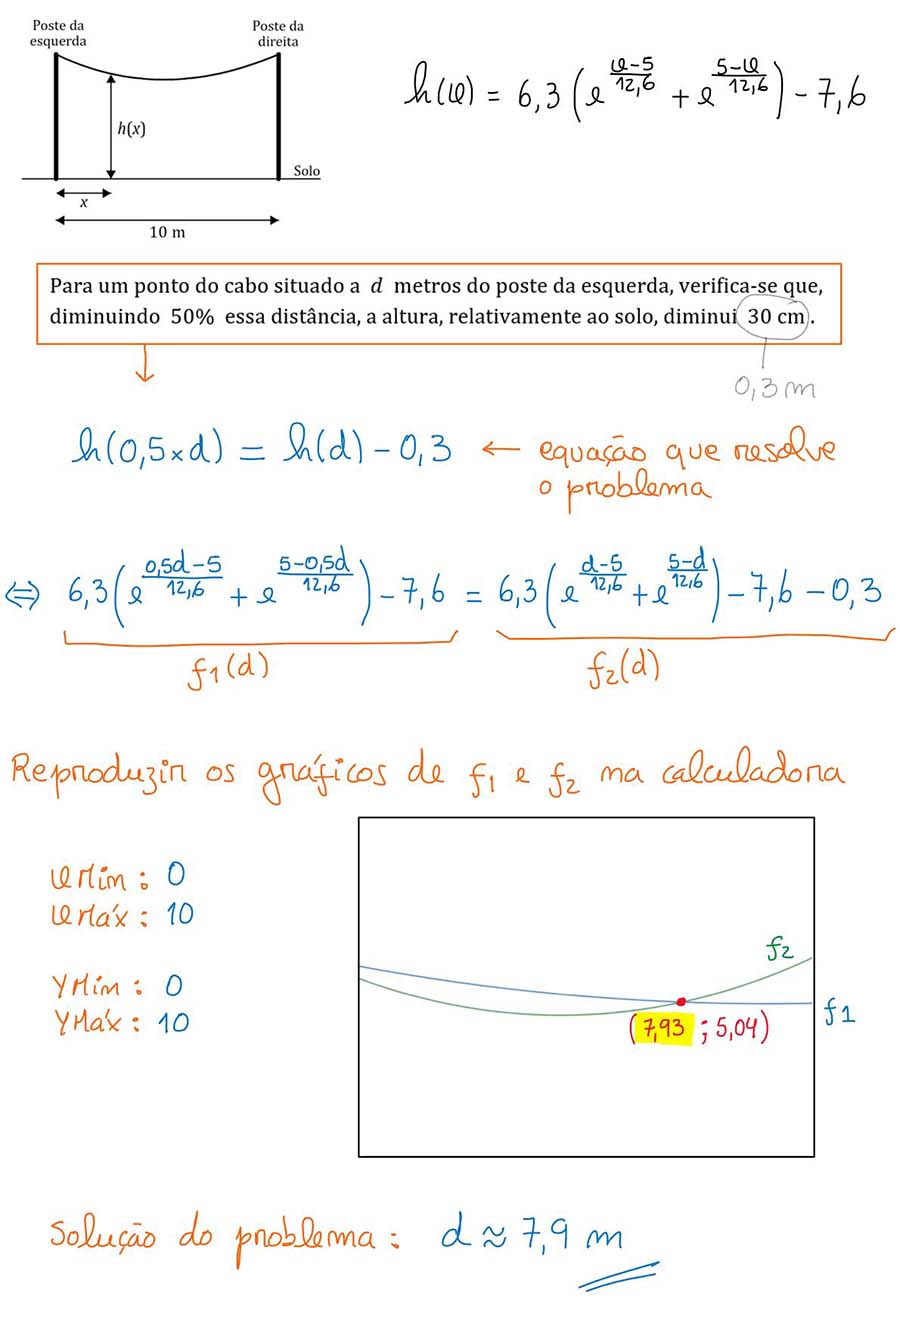 Poste da
esquerda
Poste da
direita
h(x)
Solo
x
10 m
h(x) = 6,3 (e^((x-5)/12,6) + e^((5-x)/12,6)) - 7,6
Para um ponto do cabo situado a d metros do poste da esquerda, verifica-se que,
diminuindo 50% essa distância, a altura, relativamente ao solo, diminui 30 cm .
0,3 m
h(0,5×d) = h(d) - 0,3 ← equação que resolve
o problema
⇔ 6,3(e^((0,5d-5)/12,6) + e^((5-0,5d)/12,6)) - 7,6 = 6,3(e^((d-5)/12,6) + e^((5-d)/12,6)) - 7,6 - 0,3
f1(d)
f2(d)
Reproduzir os gráficos de f1 e f2 na calculadora
xMín : 0
xMáx : 10
YMín : 0
YMáx : 10
f2
f1
(7,93 ; 5,04)
Solução do problema : d ≈ 7,9 m